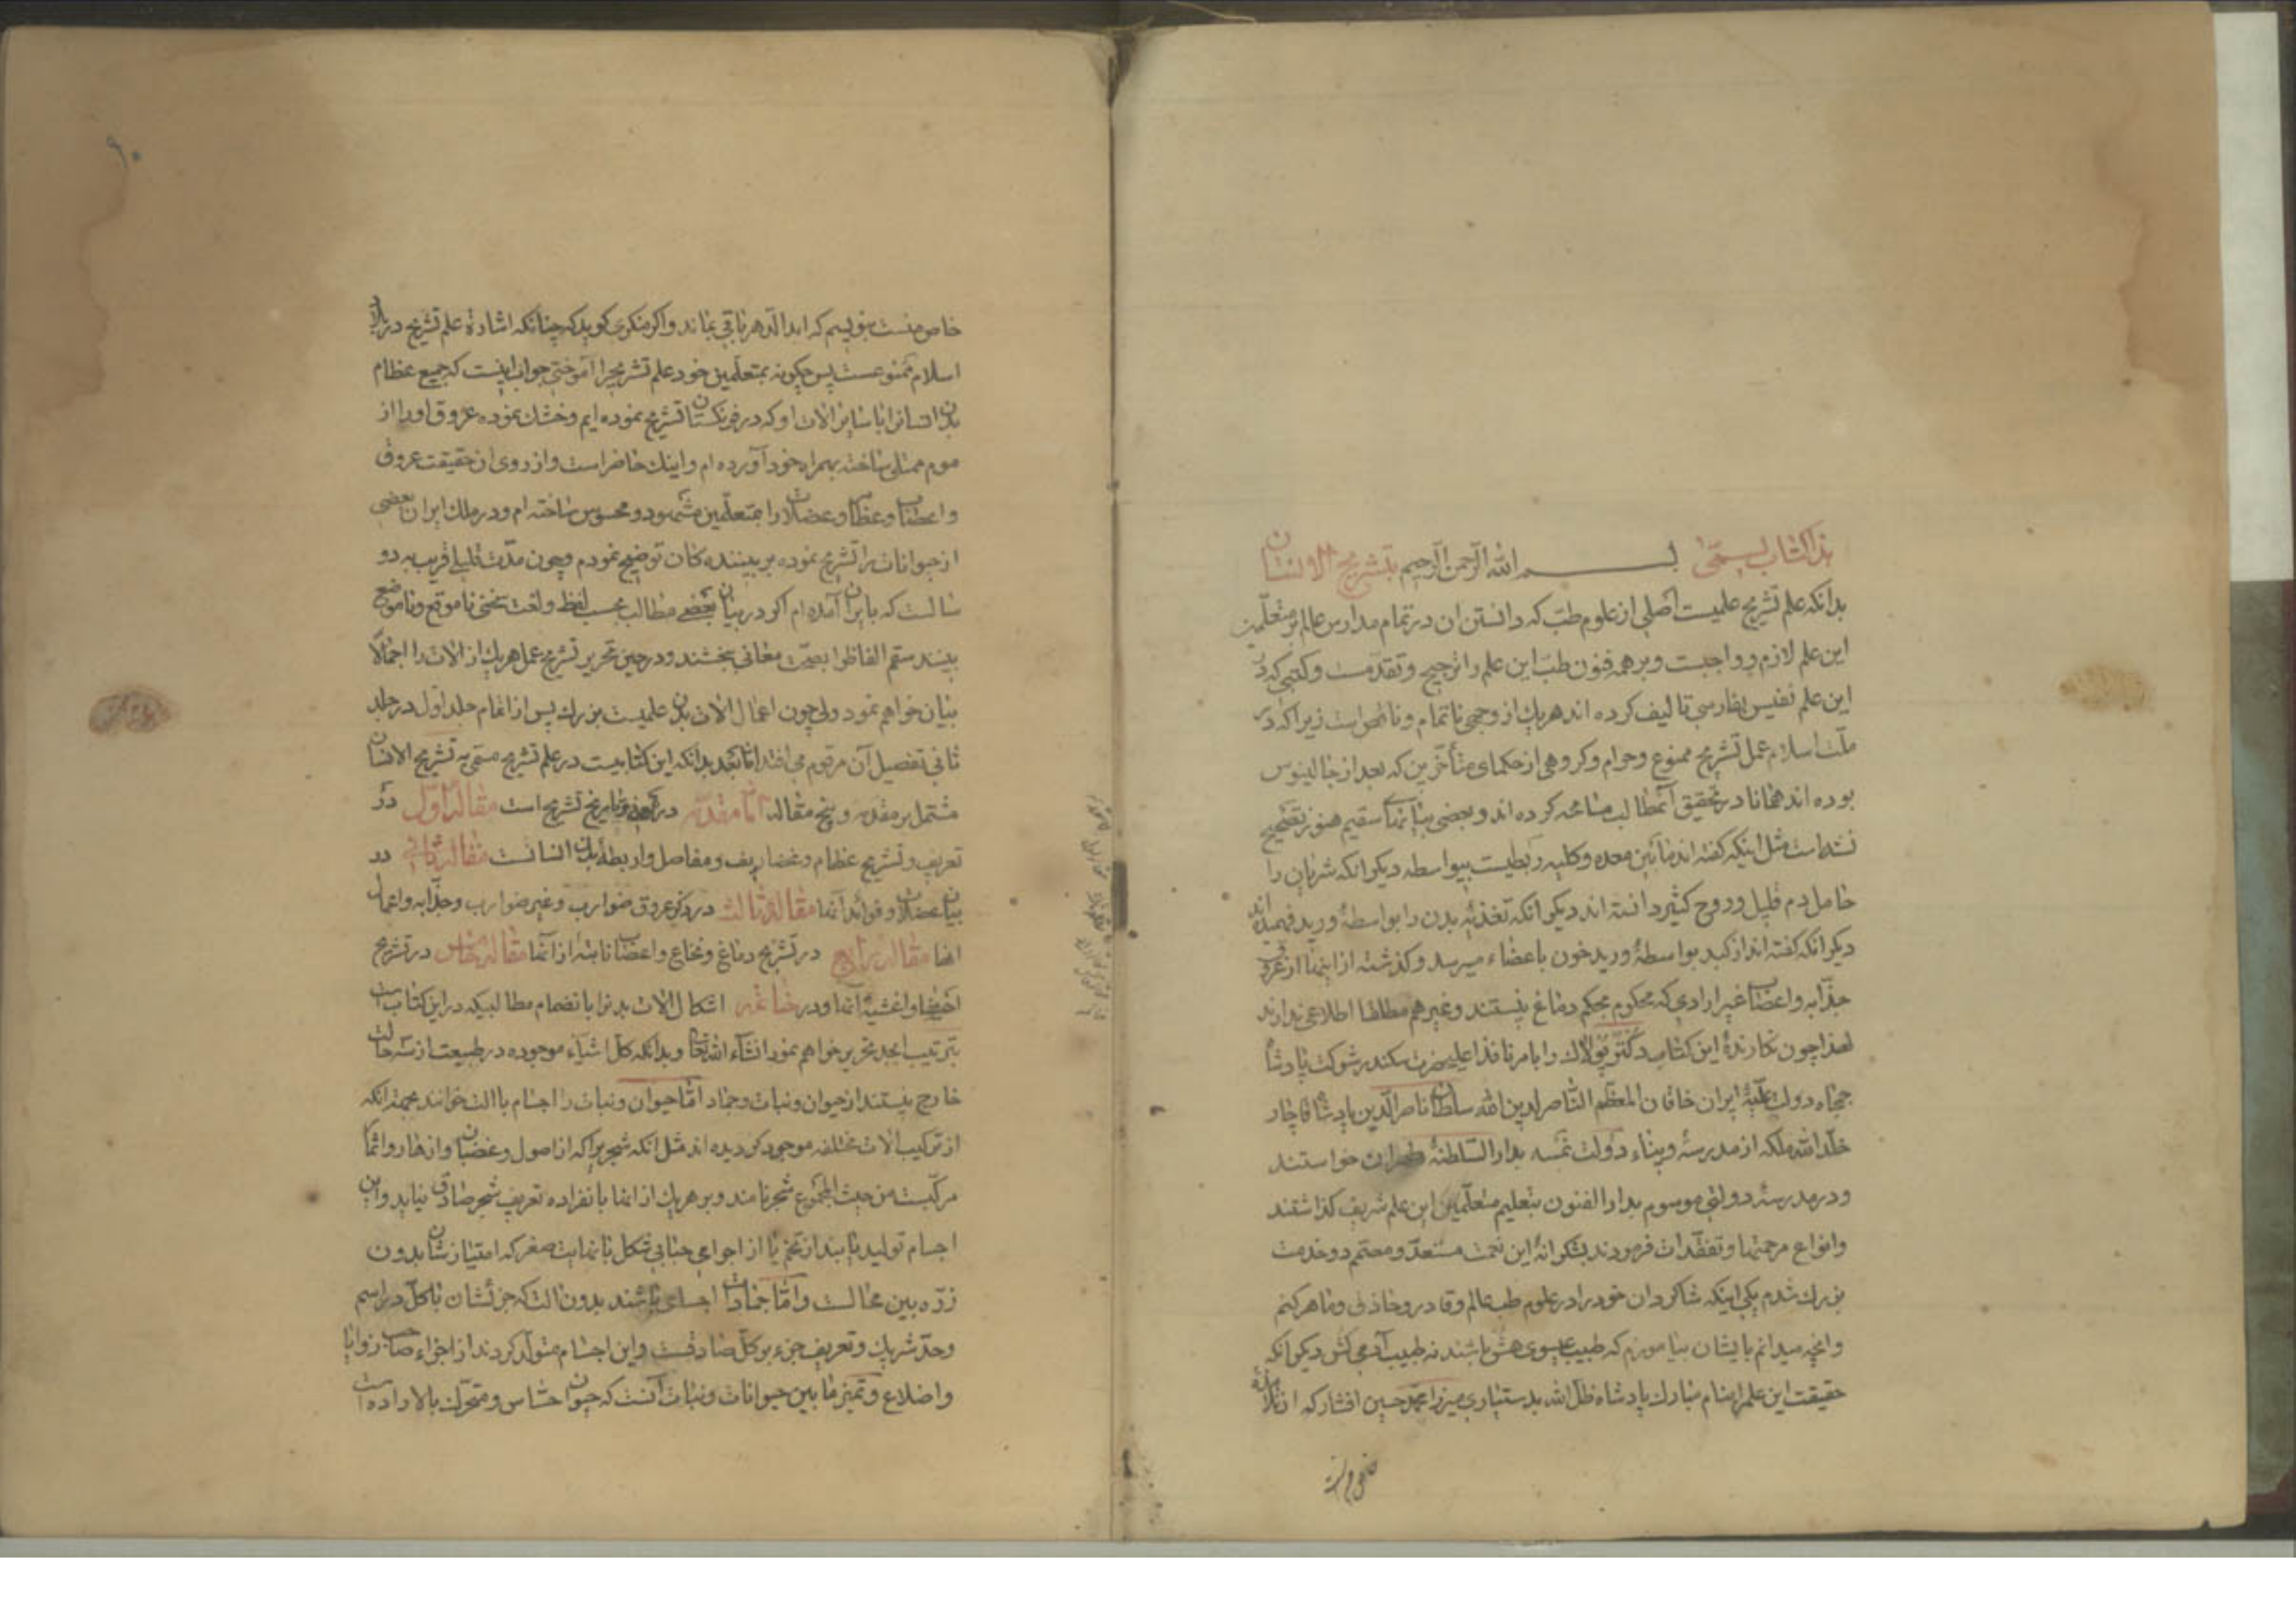 هذا کتاب یسمی بسم الله الرحمن الرحیم بتشریح الانسان
بدانکه علم تشریح علمیست اصلی از علوم طب که دانستن ان در تمام مدارس عالم بر متعلمین
این علم لازم و واجبست و بر همه فنون طب این علم را ترجیح و تقدمست و کتبی که در
این علم نفیس بفارسی تالیف کرده اند هر یک از وجهی ناتمام و ناقص است زیرا که در
ملت اسلام عمل تشریح ممنوع و حرام و کروهی از حکمای متأخرین که بعد از جالینوس
بوده اند همانا در تحقیق آنمطالب مسامحه کرده اند و بعضی بیانهای سقیم هنوز تصحیح
نشده است مثل اینکه کفته اند مابین معده و کلیه ربطیست بیواسطه دیکر انکه شریان را
حامل دم قلیل و روح کثیر دانسته اند دیکر انکه تغذیه بدن را بواسطهٔ ورید فهمیده اند
دیکر انکه کفته اند از کبد بواسطهٔ ورید خون باعضاء میرسد و کذشته از اینها از عروق
جذابه و اعصاب غیر ارادی که محکوم بحکم دماغ نیستند و غیر هم مطلقا اطلاعی ندارند
لهذا چون نکارندهٔ این کتاب دکتر پولاک را بامر نافذ اعلیحضرت سکندر شوکت پادشاه
جمجاه دولت علیهٔ ایران خاقان المعظم الناصر لدین الله سلطان ناصر الدین پادشاه قاجار
خلد الله ملکه از مدرسهٔ وینهٔ دولت نمسه بدار السلطنهٔ طهران خواستند
و در مدرسهٔ دولتی موسوم بدار الفنون بتعلیم متعلمین این علم شریف کذاشتند
و انواع مرحمتها و تفقدات فرمودند بشکرانهٔ این نعمت مستعد و مصمم دو خدمت
بزرک شدم یکی اینکه شاکردان خود را در علوم طب عالم و قادر و حاذق و ماهر کنم
و انچه میدانم بایشان بیاموزم که طبیب عیسوی هش باشند نه طبیب آدمی کش دیکر انکه
حقیقت این علم را بنام مبارک پادشاه ظل الله بدستیاری میرزا محمد حسین افشار که از تلامذهٔ
خاص منست بنویسم که ابد الدهر باقی بماند و اکر منکری کوید که چنانکه اشاره شد علم تشریح در ایران
اسلام ممنوعست پس چکونه بمتعلمین خود علم تشریح را آموختی جواب اینست که جمیع عظام
بدن انسانرا با سایر الات او که در فرنکستان تشریح نموده ایم و خشک نموده عروق او را از
موم ممتلی ساخته بهمراه خود آورده ام و اینک حاضر است و از روی ان حقیقت عروق
و اعصاب و عظام و عضلات را بمتعلمین مشهود و محسوس ساخته ام و در ملک ایران بعضی
از حیوانات را تشریح نموده بر بیننده کان توضیح نمودم و چون مدت قلیلی قریب به دو
سالست که بایران آمده ام اکر در بیان بعضی مطالب بحسب لفظ و لغت سخنی ناموقع و ناموضع
بینند ستم الفاظ را بصحت معانی بخشند و در حین تحریر تشریح عمل هر یک از الات را اجمالا
بیان خواهم نمود ولی چون اعمال الات بدن علمیست بزرک پس از اتمام جلد اول در جلد
ثانی تفصیل آن مرقوم می افتد اما بعد بدانکه این کتابیست در علم تشریح مسمی به تشریح الانسان
مشتمل بر مقدمه و پنج مقاله اما مقدمه در تعریف و تاریخ تشریح است مقالهٔ اول در
تعریف و تشریح عظام و غضاریف و مفاصل و اربطهٔ بدن انسانست مقالهٔ ثانی در
بیان عضلات و فوائد آنها مقالهٔ ثالث در ذکر عروق ضوارب و غیر ضوارب و جذابه و اعمال
انها مقالهٔ رابع در تشریح دماغ و نخاع و اعصاب نابته از آنها مقالهٔ خامس در تشریح
احشا و اغشیهٔ آنها و در خاتمه اشکال الات بدنرا بانضمام مطالبیکه در این کتاب است
بترتیب ابجد تحریر خواهم نمود انشآء الله تعالی و بدانکه کل اشیآء موجوده در طبیعت از سه حالت
خارج نیستند از حیوان و نبات و جماد اما حیوان و نبات را اجسام با الت خوانند بجهة انکه
از ترکیب الات مختلفه موجود کردیده اند مثل انکه شجر را که از اصول و غصان و ازهار و اثمار
مرکبست من حیث المجموع شجر نامند و بر هر یک از انها بانفراده تعریف شجر صادق نیاید و این
اجسام تولید یابند از تخم یا از اجزای حبابی شکل بانهایت صغر که امتیازشان بدون
ذره بین محالست و اما جمادات اجسامی باشند بدون الت که جزئشان با کل در اسم
و حد شریک و تعریف جزء بر کل صادقست و این اجسام متولد کردند از اجزاء صاحب زوایا
و اضلاع و تمیز مابین حیوانات و نباتات آنست که حیوان حساس و متحرک بالاراده است